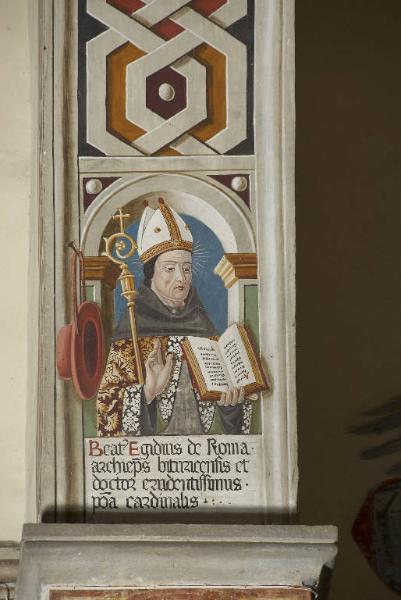 Beat⁹ Egidius de Roma.
archieps bituricensis et
doctor erudentissimus.
poa cardinalis